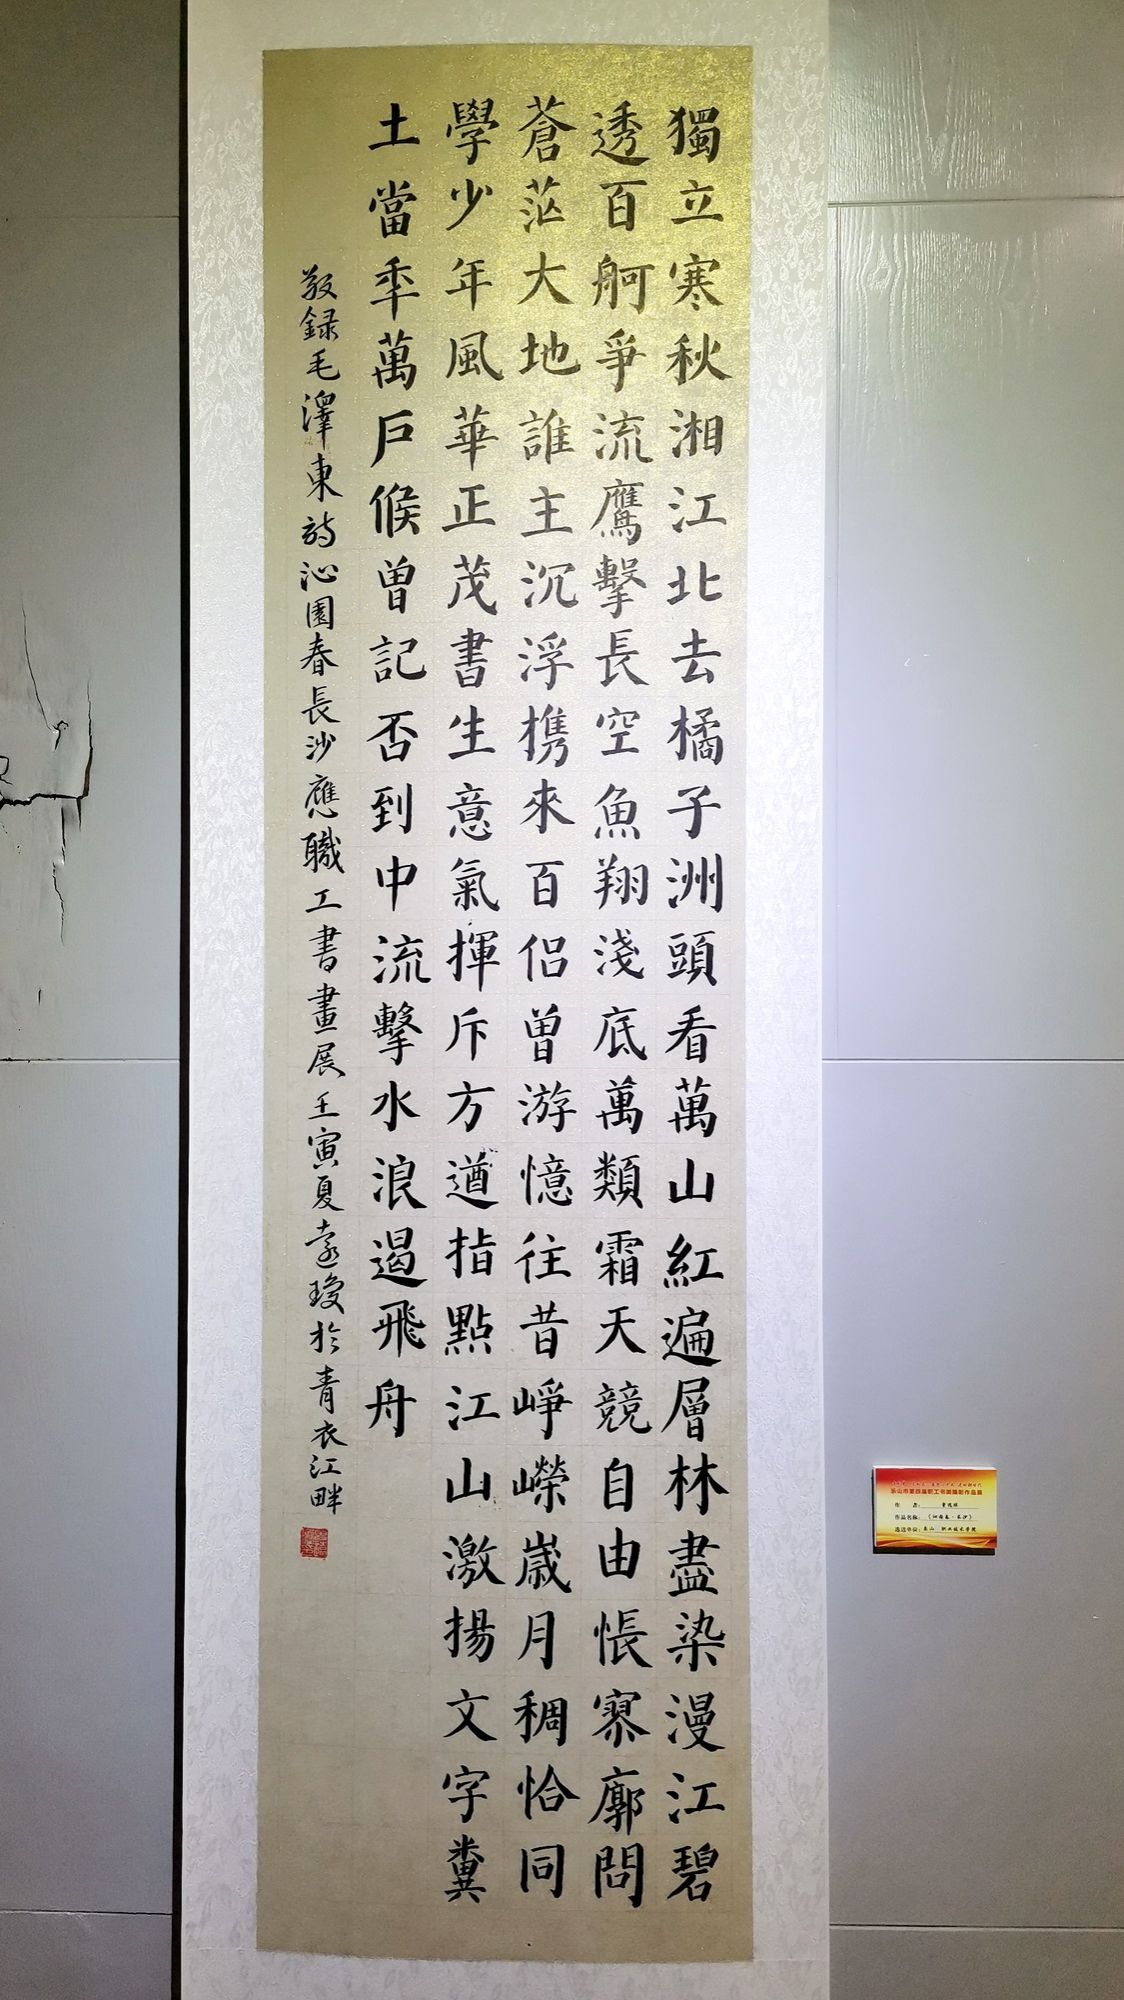 獨立寒秋湘江北去橘子洲頭看萬山紅遍層林盡染漫江碧
透百舸爭流鷹擊長空魚翔淺底萬類霜天競自由悵寥廓問
蒼茫大地誰主沉浮携來百侣曾游憶往昔崢嶸歲月稠恰同
學少年風華正茂書生意氣揮斥方遒指點江山激揚文字糞
土當年萬户侯曾記否到中流擊水浪遏飛舟
敬録毛澤東詩沁園春長沙應職工書畫展壬寅夏遠瓊於青衣江畔
乐山市第四届职工书画摄影作品展
作者：
作品名称：《沁园春·长沙》
选送单位：乐山职业技术学院